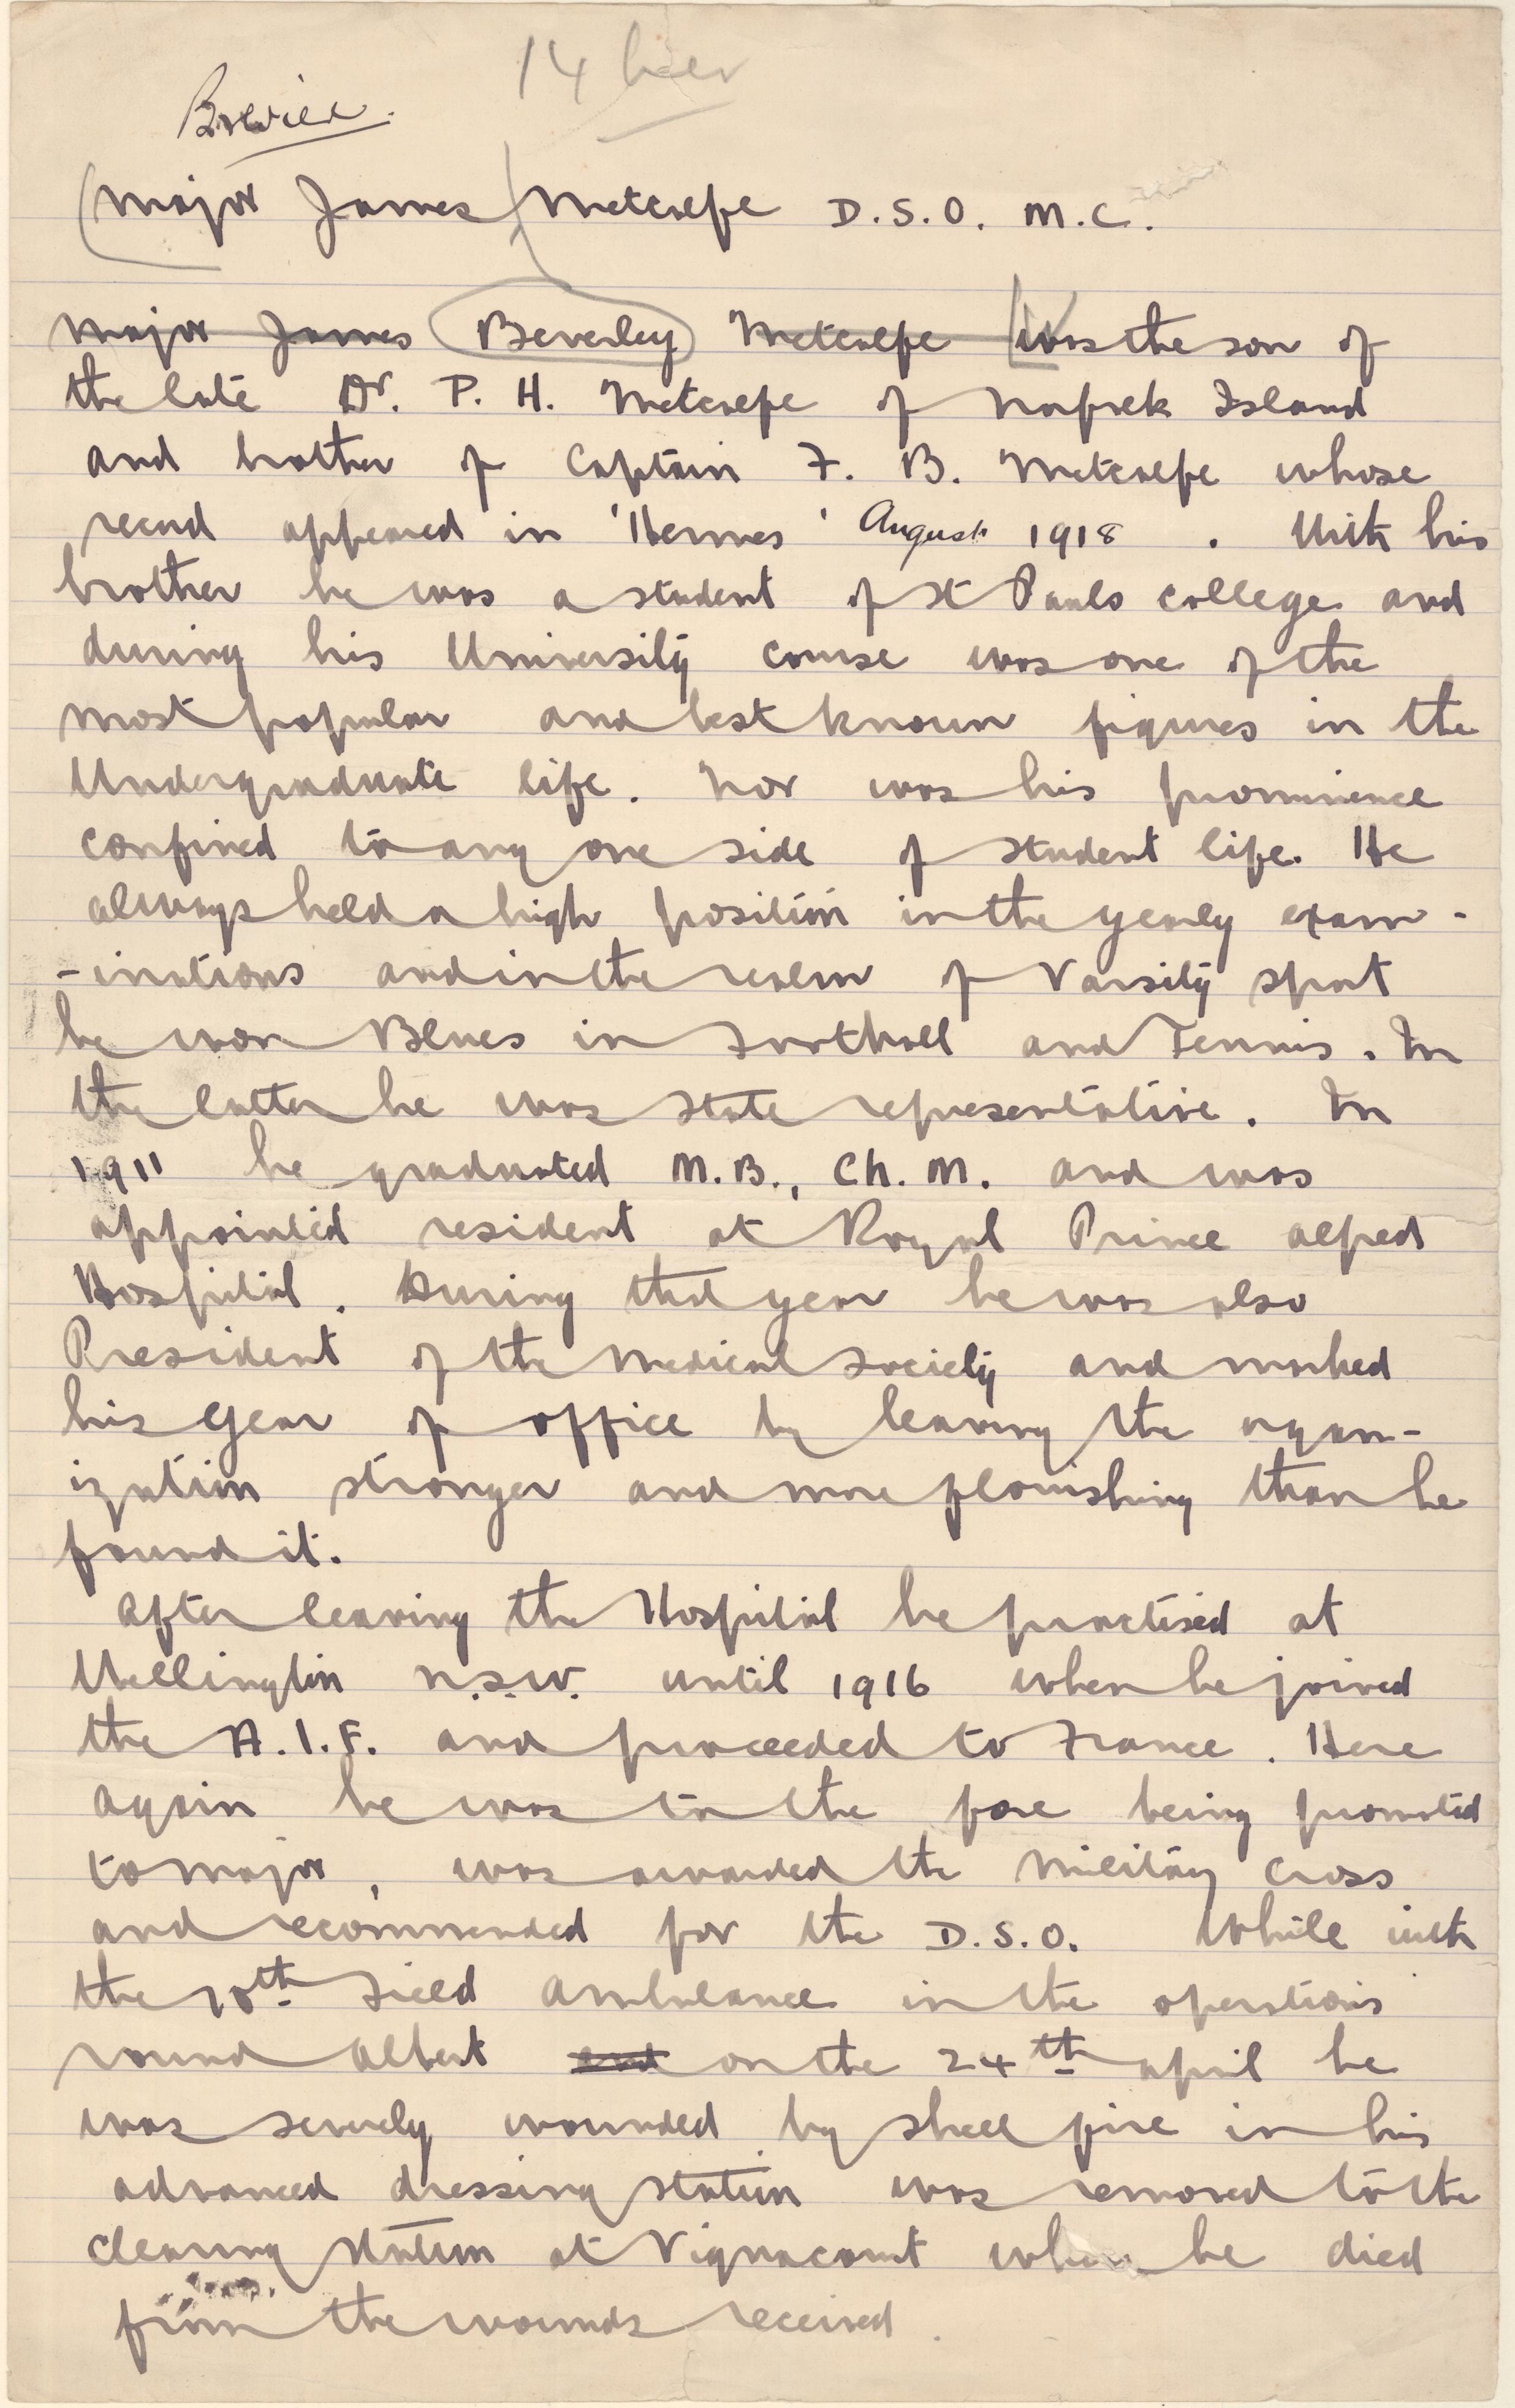 14
Brevier
Major James Metcalfe D.S.O. M.C.
Major James Beverley Metcalfe was the son of
the late Dr. P. H. Metcalfe of Norfolk Island
and brother of Captain F. B. Metcalfe whose
record appeared in 'Hermes' August 1918 . With his
brother he was a student of St Pauls College and
during his University course was one of the
most popular and best known figures in the
Undergraduate life. Nor was his prominence
confined to any one side of student life. He
always held a high position in the yearly exam-
-inations and in the realm of Varsity sport
he won Blues in Football and Tennis. In
the latter he was State representative. In
1911 he graduated M.B., Ch. M. and was
appointed resident at Royal Prince Alfred
Hospital. During that year he was also
President of the Medical Society and marked
his year of office by leaving the organ-
ization stronger and more flourishing than he
found it.
After leaving the Hospital he practised at
Wellington N.S.W. until 1916 when he joined
the A.I.F. and proceeded to France. Here
again he was to the fore being promoted
to Major, was awarded the Military Cross
and recommended for the D.S.O. While with
the 10th Field Ambulance in the operations
round Albert and on the 24th April he
was severely wounded by shell fire in his
advanced dressing station was removed to the
clearing station at Vignacourt where he died
from the wounds received.